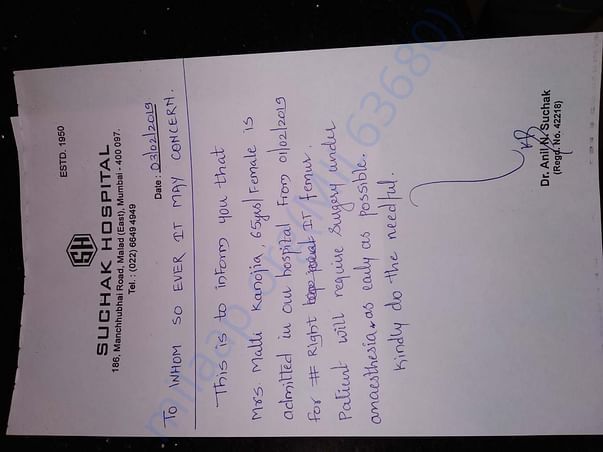 ESTD. 1950
SH
SUCHAK HOSPITAL
186, Manchhubhai Road, Malad (East), Mumbai - 400 097.
Tel. : (022) 6649 4949
Date : 03/02/2019
TO WHOM SO EVER IT MAY CONCERN.
This is to inform you that
Mrs. Malti Kanojia, 65yrs/Female is
admitted in our hospital From 01/02/2019
for # Right IT femur.
Patient will require surgery under
anaesthesia as early as possible.
Kindly do the needful.
Dr. Anil N. Suchak
(Regd. No. 42218)
milaap.org (MILL 63680)